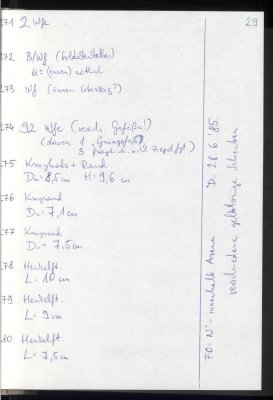 29
271 2 Wfe
272 B/Wf (Soldatenteller)
u = (innen) rötlich
273 Wf (innen Überzug?)
274 92 Wfe (versch. Gefäße!)
(davon 1
3 fraglich, weil ziegelfgt.)
275 Krughals + Rand
Dm = 8,5 cm H = 9,6 cm
276 Krugrand
Dm = 7,1 cm
277 Krugrand
Dm = 7,5 cm
278 Henkelfrt.
L = 10 cm
279 Henkelfrt.
L = 9 cm
280 Henkelfrt.
L = 7,5 cm
FO: N - innerhalb Arena D: 28.6.85
verschiedene gelbtonige Scherben